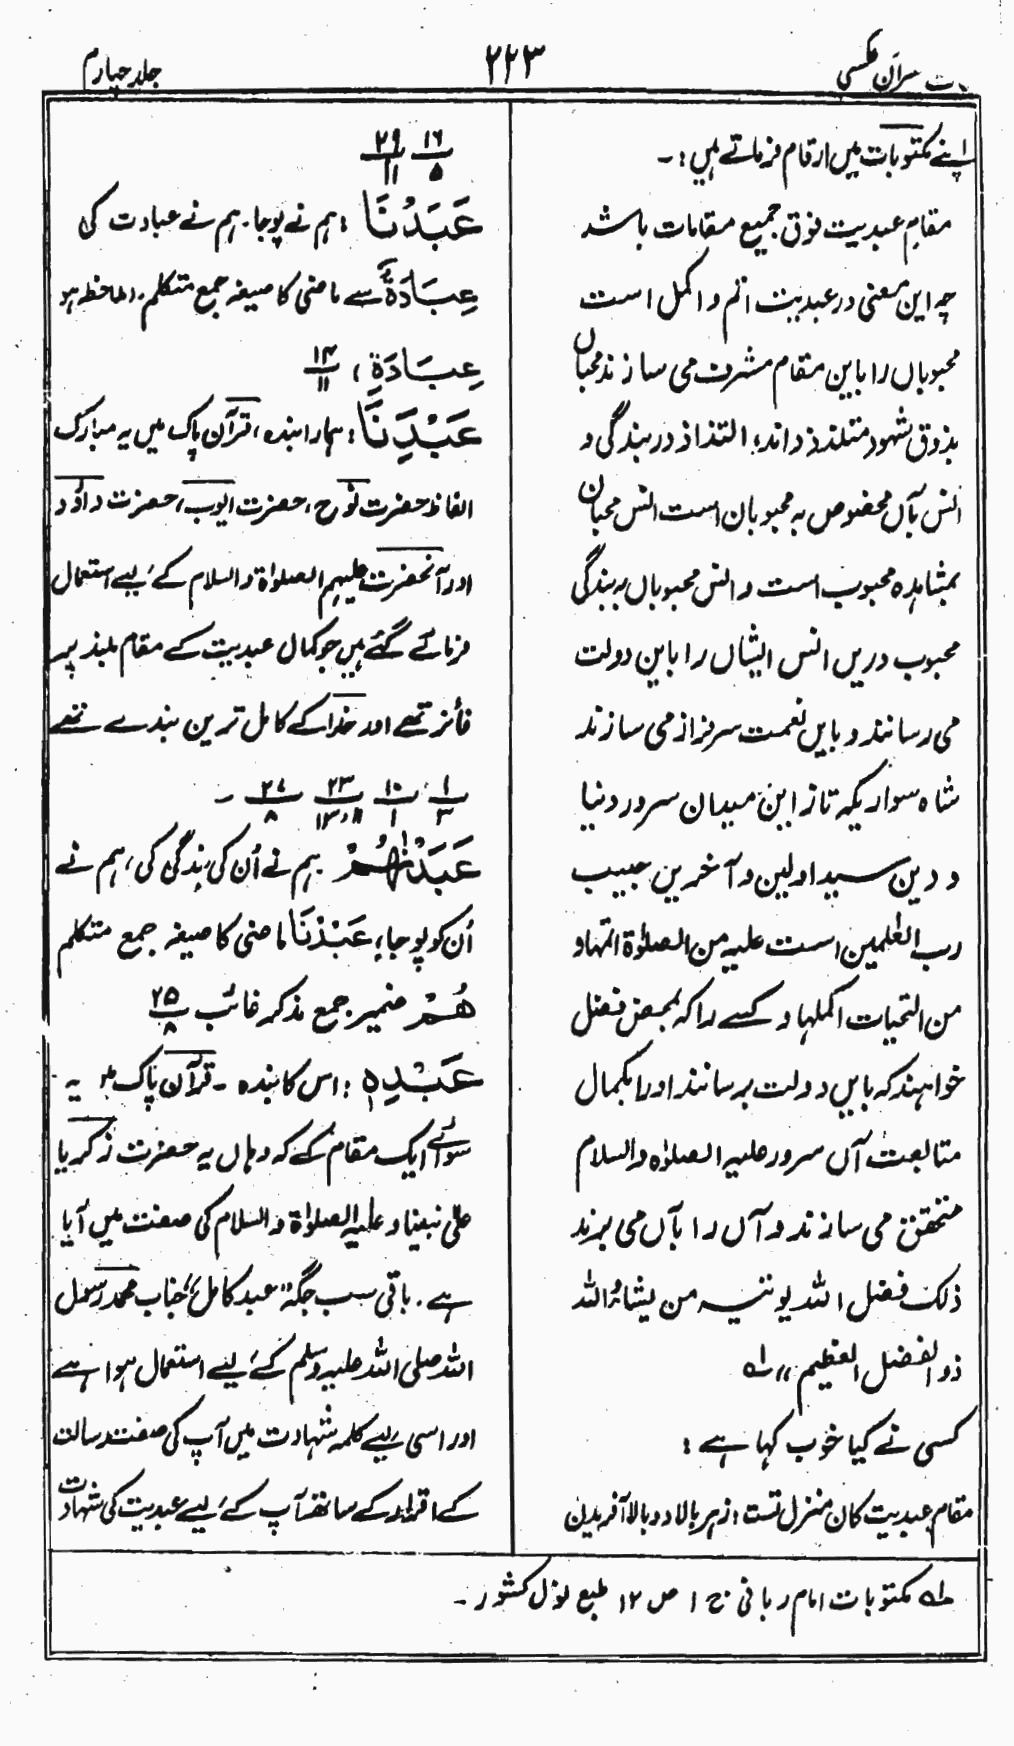 لغات القرآن عکسی
۲۲۳
جلد چہارم
اپنے مکتوبات میں ارقام فرماتے ہیں :-
مقام عبدیت فوق جمیع مقامات باشد
چہ این معنی در عبدیت اتم و اکمل است
محبوباں را باین مقام مشرف می سازند محباں
بذوق شہود متلذذ داند، التذاذ در بندگی و
انس بآں مخصوص بہ محبوبان است انس محباں
بمشاہدہ محبوب است و انس محبوباں بہ بندگی
محبوب دریں انس ایشاں را باین دولت
می رسانند و بایں نعمت سرفراز می سازند
شاہ سوار یکہ تاز این میدان سرور دنیا
و دین سید اولین و آخرین حبیب
رب العٰلمین است علیہ من الصلوٰۃ اتمہا و
من التحیات اکملہا و کسے را کہ بمحض فضل
خواہند کہ بایں دولت برسانند او را بکمال
متابعت آں سرور علیہ الصلوٰہ والسلام
متحقق می سازند و آں را بآں می برند
ذلک فضل اللہ یوتیہ من یشاء واللہ
ذو الفضل العظیم " لہ
کسی نے کیا خوب کہا ہے :
مقام عبدیت کان منزل تست : زہر بالا و دو بالا آفریدن
۱۶/۵ ۲۹/۱۱
عَبَدْنَا : ہم نے پوجا. ہم نے عبادت کی
عِبَادَۃٌ سے ماضی کا صیغہ جمع متکلم. ملاحظہ ہو
عِبَادَۃِ ، ۱۴/۱۱
عَبْدِنَا : ہمارا بندہ، قرآن پاک میں یہ مبارک
الفاظ حضرت نوح، حضرت ایوب، حضرت داؤد
اور آنحضرت علیہم الصلوٰۃ والسلام کے لیے استعمال
فرمائے گئے ہیں جو کمال عبدیت کے مقام بلند پر
فائز تھے اور خدا کے کامل ترین بندے تھے
۱/۳ ۱۰/۱ ۲۳/۱۲،۱۱ ۲۷/۸ -
عَبَدْنٰہُمْ : ہم نے اُن کی بندگی کی، ہم نے
اُن کو پوجا، عَبَدْنَا ماضی کا صیغہ جمع متکلم
ہُمْ ضمیر جمع مذکر غائب ۲۵/۸
عَبْدِہٖ : اس کا بندہ - قرآن پاک میں یہ
سوائے ایک مقام کے کہ وہاں یہ حضرت زکریا
علی نبینا و علیہ الصلوٰۃ والسلام کی صفت میں آیا
ہے. باقی سب جگہ "عبد کامل" جناب محمد رسول
اللہ صلی اللہ علیہ وسلم کے لیے استعمال ہوا ہے
اور اسی لیے کلمہ شہادت میں آپ کی صفت رسالت
کے اقرار کے ساتھ آپ کے لیے عبدیت کی شہادت
لہ مکتوبات امام ربانی ج ۱ ص ۱۲ طبع نول کشور -